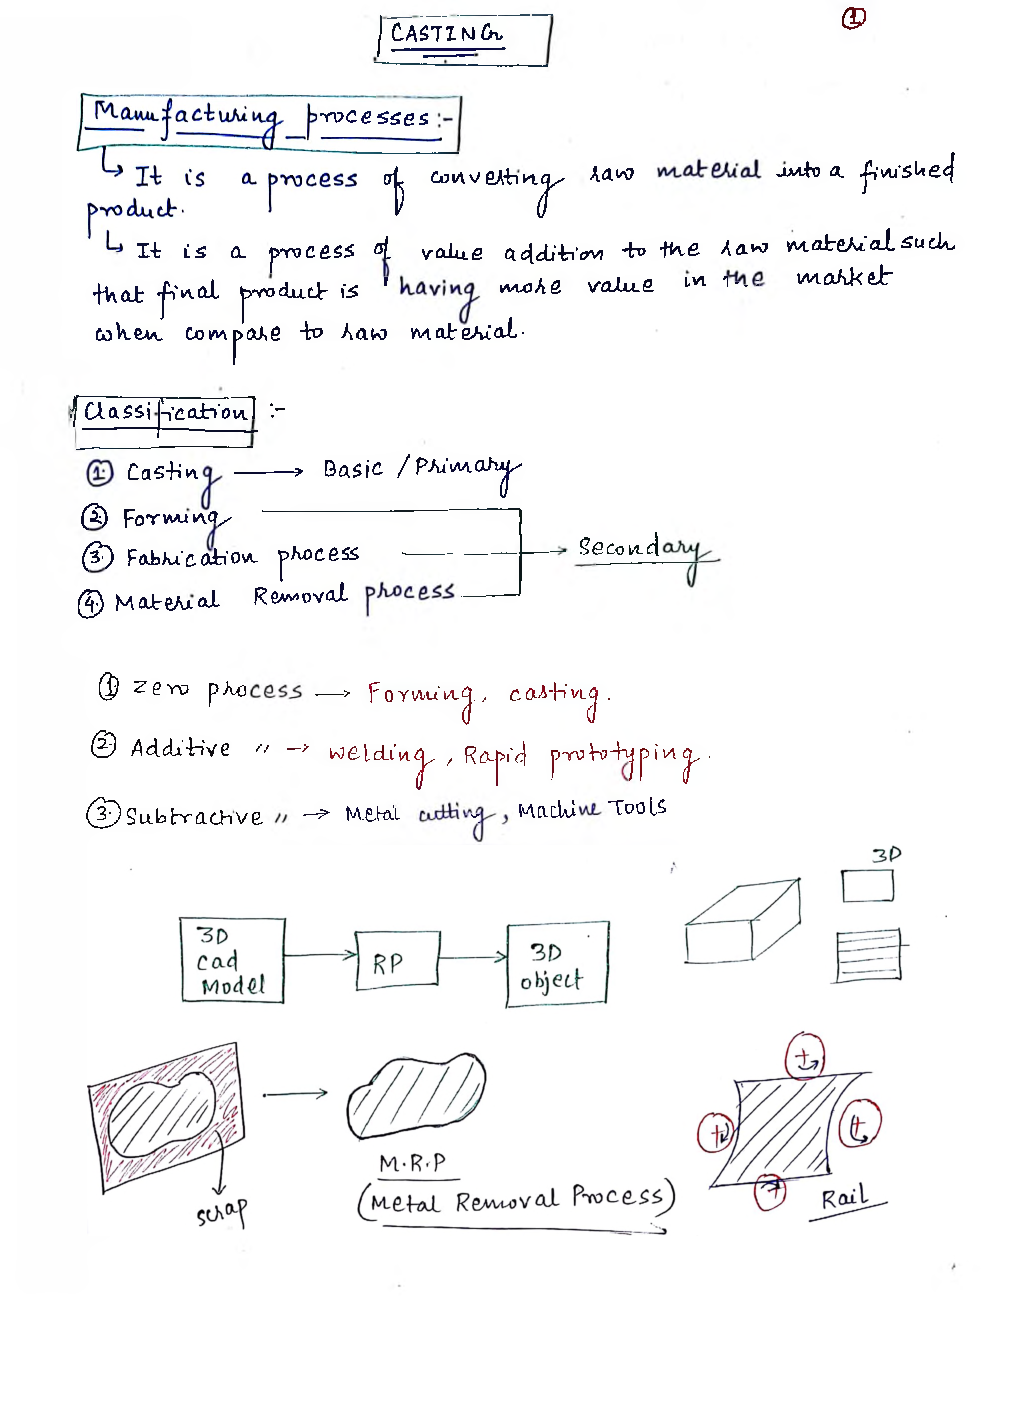 CASTING
1
Manufacturing processes:-
↳ It is a process of converting raw material into a finished
product.
↳ It is a process of value addition to the raw material such
that final product is having more value in the market
when compare to raw material.
Classification :-
① Casting → Basic / Primary
② Forming
③ Fabrication process → Secondary
④ Material Removal process
① Zero process → Forming, casting.
② Additive " → welding, Rapid prototyping.
③ Subtractive " → Metal cutting, Machine Tools
3D
3D
Cad
Model
RP
3D
object
scrap
M.R.P
(Metal Removal Process)
Rail